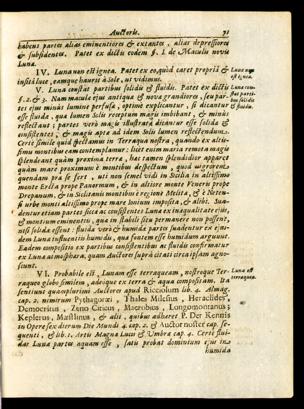 Auctoris. 71
habens partes alias eminentiores & extantes, alias depressiores
& subsidentes. Patet ex dictis codem §. I. de Maculis novis
Luna.
IV. Luna non est ignea. Patet ex eo, quod caret propriâ &
insitâ luce, eamque haurit à Sole, ut vidimus.
Luna non
est ignea.
V. Luna constat partibus solidis & fluidis. Patet ex dictis
§. 2. & 3. Nam maculæ ejus antiquæ & nova grandiores, seu par-
tes ejus minùs lumine perfusæ, optimè explicantur, si dicantur
esse fluida, quæ lumen Solis receptum magis imbibant, & minùs
reflectant; partes verò magis illustratæ dicantur esse solida &
consistentes, & magis apta ad idem Solis lumen reflectendum.
Luna con-
stat partib-
bus solidis
& fluidis.
Certè simile quid spectamus in Terraqua nostra, quando ex altis-
simo montium eam contemplamur: licèt enim maria remota magis
splendeant quàm proxima terra, hac tamen splendidior apparet
quàm mare proximum è montibus despectum, quod nigrorem
quendam præ se fert, uti non semel vidi in Sicilia in altissimo
monte Ercta prope Panormum, & in altiore monte Veneris prope
Drepanum, & in Sicilianis montibus è regione Melita, &
urbe monti altissimo prope mare Ionium imposita, & alibi. Sua-
dentur etiam partes siccæ ac consistentes Luna ex inæqualitate ejus,
& montium eminentiis, quæ in stabili situ permanere non possent,
nisi solida essent: fluida verò & humida partes suadentur ex ejus-
dem Luna influentiis humidis, qua fontem esse humidum arguunt.
Eadem compositio ex partibus consistentibus ac fluidis confirmatur
ex Luna atmosphæra, quam Auctores suprà citati circa ipsam agno-
scunt.
VI. Probabile est, Lunam esse terraqueam, nostroque Ter-
raqueo globo similem, adeóque ex terra & aqua compositam. Ita
sensisse quamplurimi Auctores apud Ricciolum lib. 4. Almag.
cap. 2. nimirum Pythagoræi, Thales Milesius, Heraclides,
Democritus, Zeno Citicus, Macrobius, Longomontanus;
Keplerus, Mæstlinus, & alii, quibus adhæret P. Der Kennis
in Opere sex dierum Die Mundi 4. cap. 2. & Auctor noster cap. se-
quenti, & lib. 1. Artis Magna Lucis & Umbræ cap. 4. Certè flui-
das Luna partes aquam esse, satis probat dominium ejus in
Luna est
terraquea.
humida